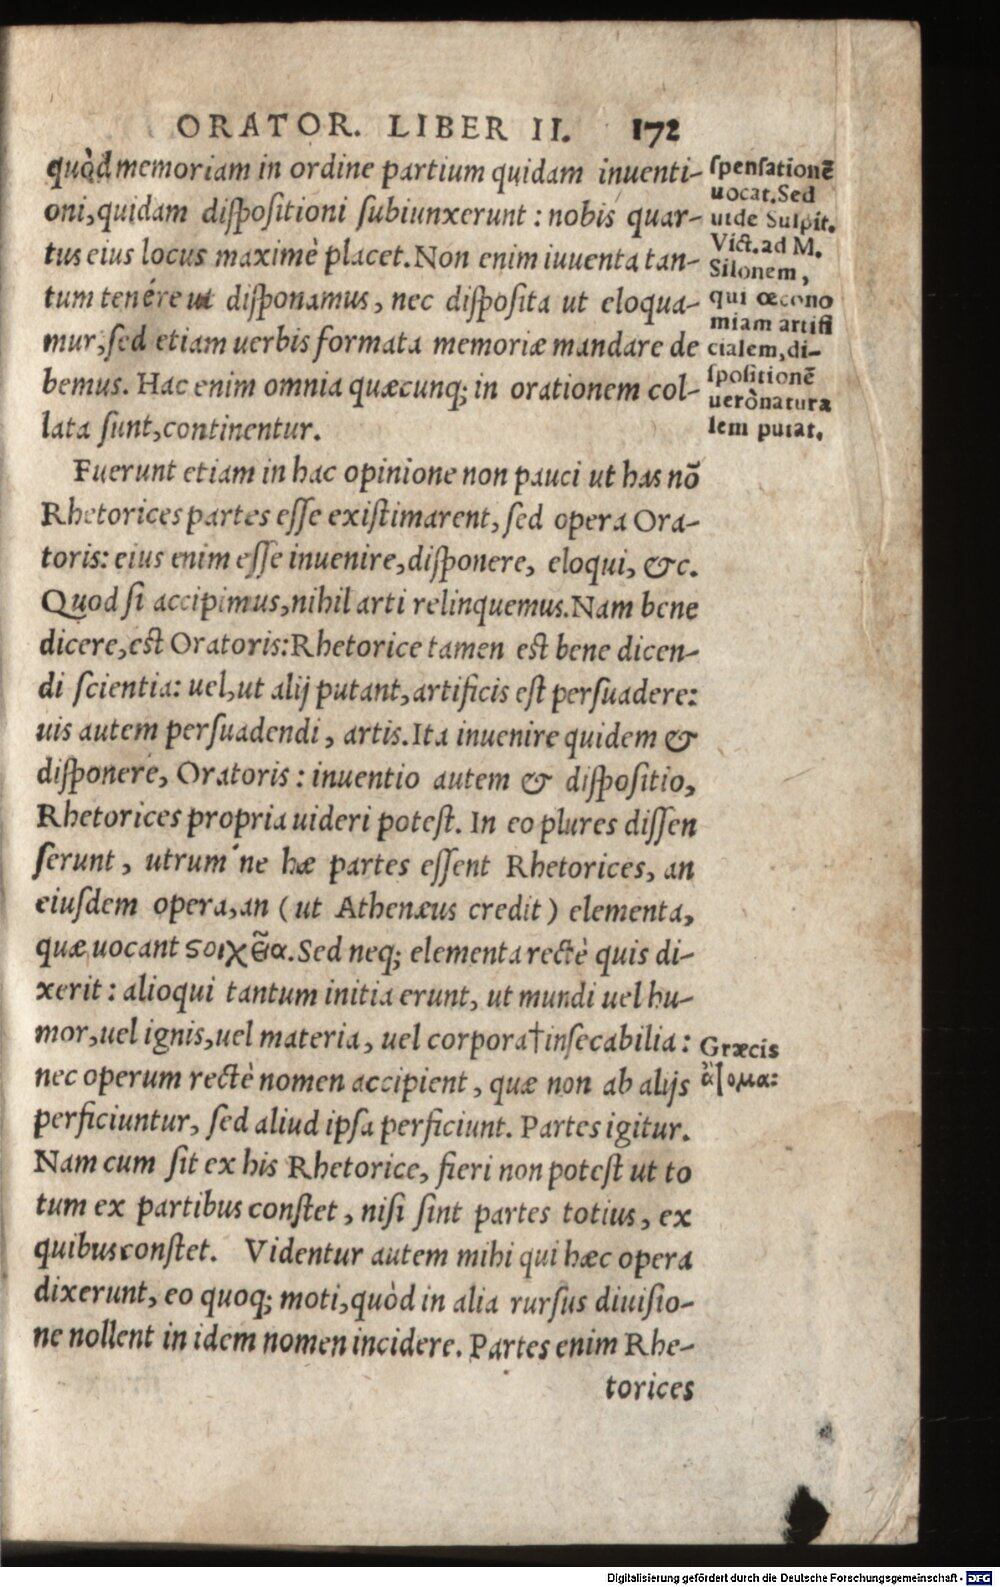 ORATOR. LIBER II. 172
quòd memoriam in ordine partium quidam inuenti-
oni, quidam dispositioni subiunxerunt : nobis quar-
tus eius locus maximè placet. Non enim iuuenta tan-
tum tenére ut disponamus, nec disposita ut eloqua-
mur, sed etiam uerbis formata memoriæ mandare de
bemus. Hac enim omnia quæcunq; in orationem col-
lata sunt, continentur.
Fuerunt etiam in hac opinione non pauci ut has nō
Rhetorices partes esse existimarent, sed opera Ora-
toris: eius enim esse inuenire, disponere, eloqui, &c.
Quod si accipimus, nihil arti relinquemus. Nam bene
dicere, est Oratoris: Rhetorice tamen est bene dicen-
di scientia: uel, ut alij putant, artificis est persuadere:
uis autem persuadendi, artis. Ita inuenire quidem &
disponere, Oratoris : inuentio autem & dispositio,
Rhetorices propria uideri potest. In eo plures dissen
serunt, utrum'ne hæ partes essent Rhetorices, an
eiusdem opera, an (ut Athenæus credit) elementa,
quæ uocant ϛοιχεῖα. Sed neq; elementa rectè quis di-
xerit : alioqui tantum initia erunt, ut mundi uel hu-
mor, uel ignis, uel materia, uel corpora†insecabilia:
nec operum rectè nomen accipient, quæ non ab alijs
perficiuntur, sed aliud ipsa perficiunt. Partes igitur.
Nam cum sit ex his Rhetorice, fieri non potest ut to
tum ex partibus constet, nisi sint partes totius, ex
quibus constet. Videntur autem mihi qui hæc opera
dixerunt, eo quoq; moti, quòd in alia rursus diuisio-
ne nollent in idem nomen incidere. Partes enim Rhe-
torices
spensationē
uocat. Sed
uide Sulpit.
Vict. ad M.
Silonem,
qui œcono
miam artifi
cialem, di-
spositionē
uerò natura
lem putat.
Græcis
ἄτομα:
Digitalisierung gefördert durch die Deutsche Forschungsgemeinschaft - DFG